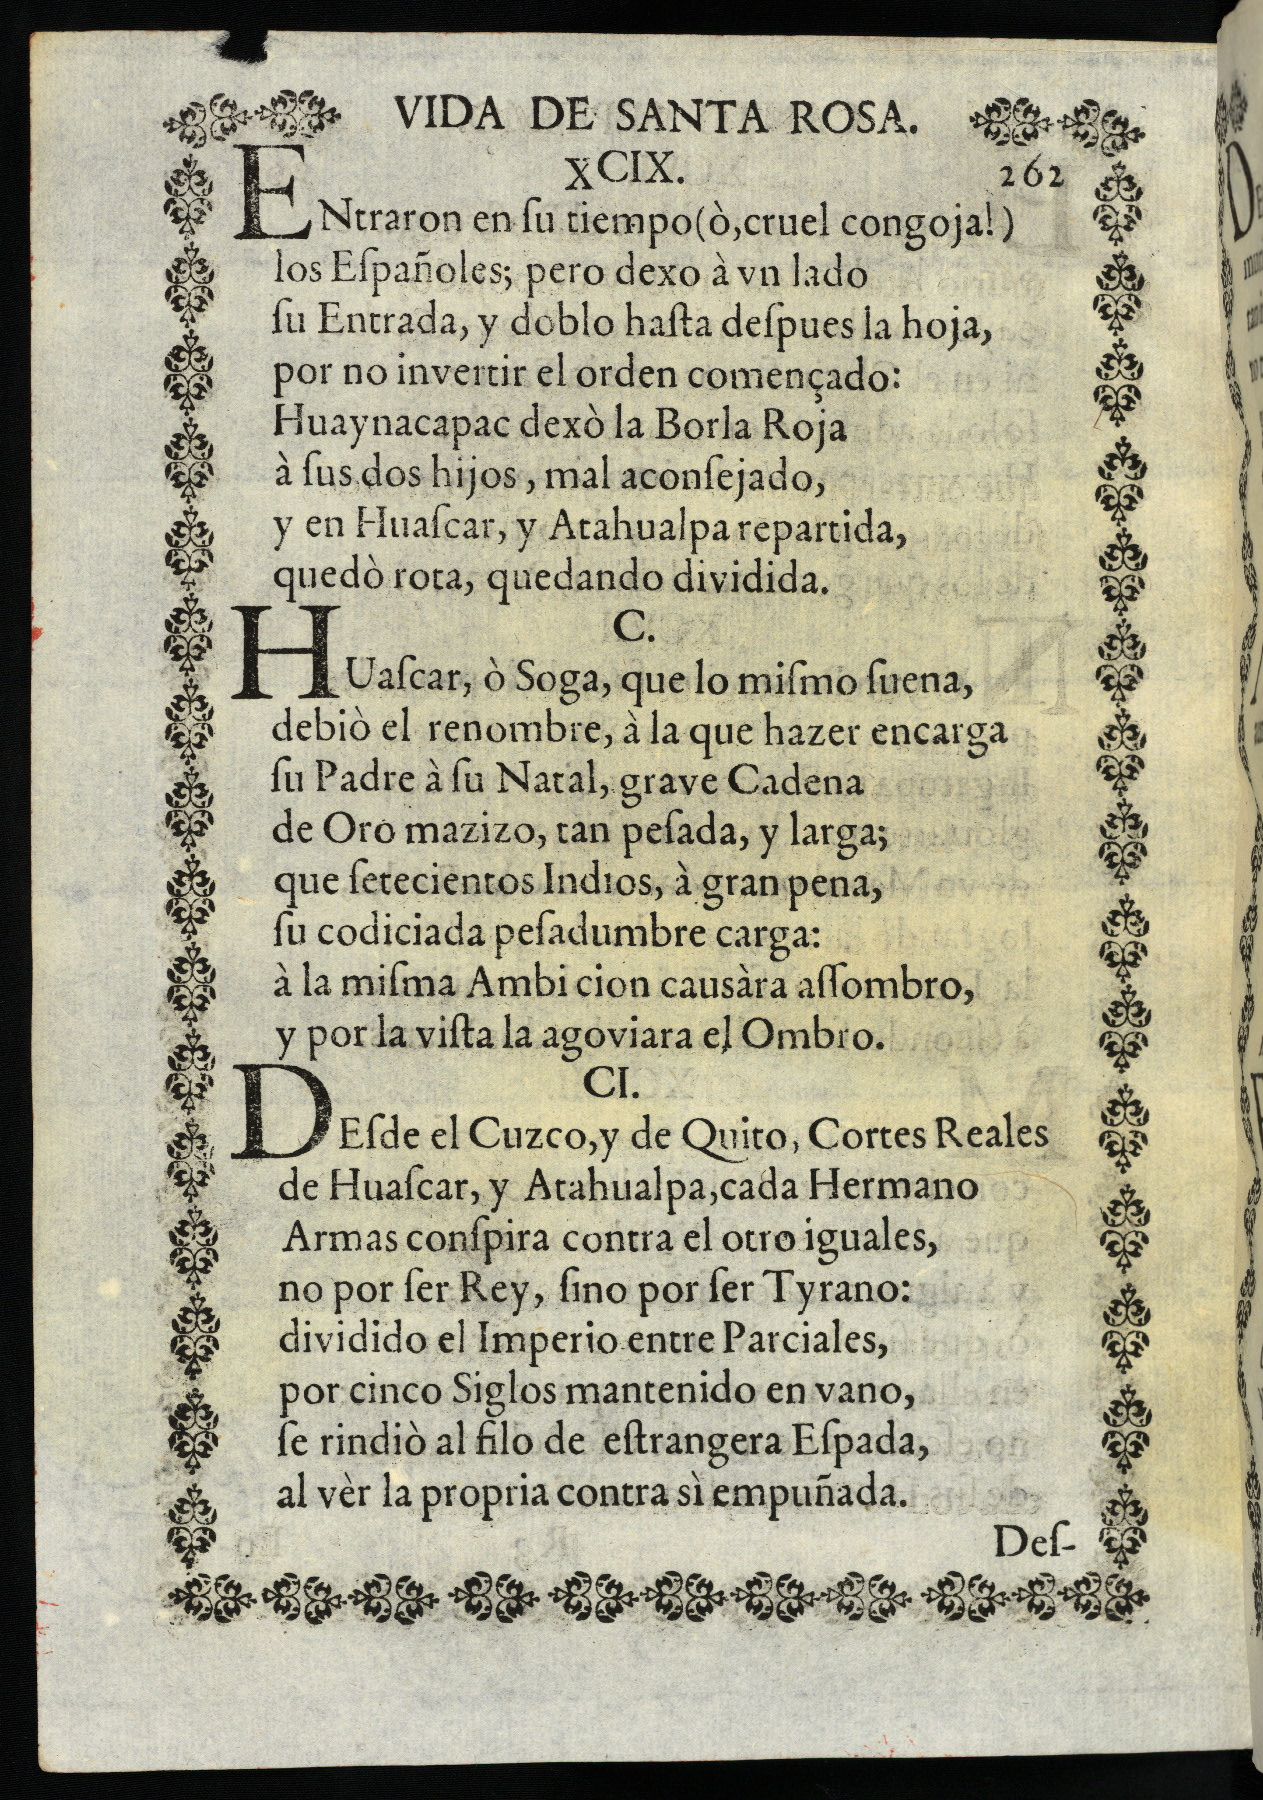 VIDA DE SANTA ROSA.
XCIX. 262
ENtraron en ſu tiempo(ò,cruel congoja!)
los Eſpañoles; pero dexo à vn lado
ſu Entrada, y doblo haſta deſpues la hoja,
por no invertir el orden començado:
Huaynacapac dexò la Borla Roja
à ſus dos hijos, mal aconſejado,
y en Huaſcar, y Atahualpa repartida,
quedò rota, quedando dividida.
C.
HUaſcar, ò Soga, que lo miſmo ſuena,
debiò el renombre, à la que hazer encarga
ſu Padre à ſu Natal, grave Cadena
de Oro mazizo, tan peſada, y larga;
que ſetecientos Indios, à gran pena,
ſu codiciada peſadumbre carga:
à la miſma Ambi cion causàra aſſombro,
y por la viſta la agoviara el Ombro.
CI.
DEſde el Cuzco,y de Quito, Cortes Reales
de Huaſcar, y Atahualpa,cada Hermano
Armas conſpira contra el otro iguales,
no por ſer Rey, ſino por ſer Tyrano:
dividido el Imperio entre Parciales,
por cinco Siglos mantenido en vano,
ſe rindiò al filo de eſtrangera Eſpada,
al vèr la propria contra sì empuñada.
Deſ-